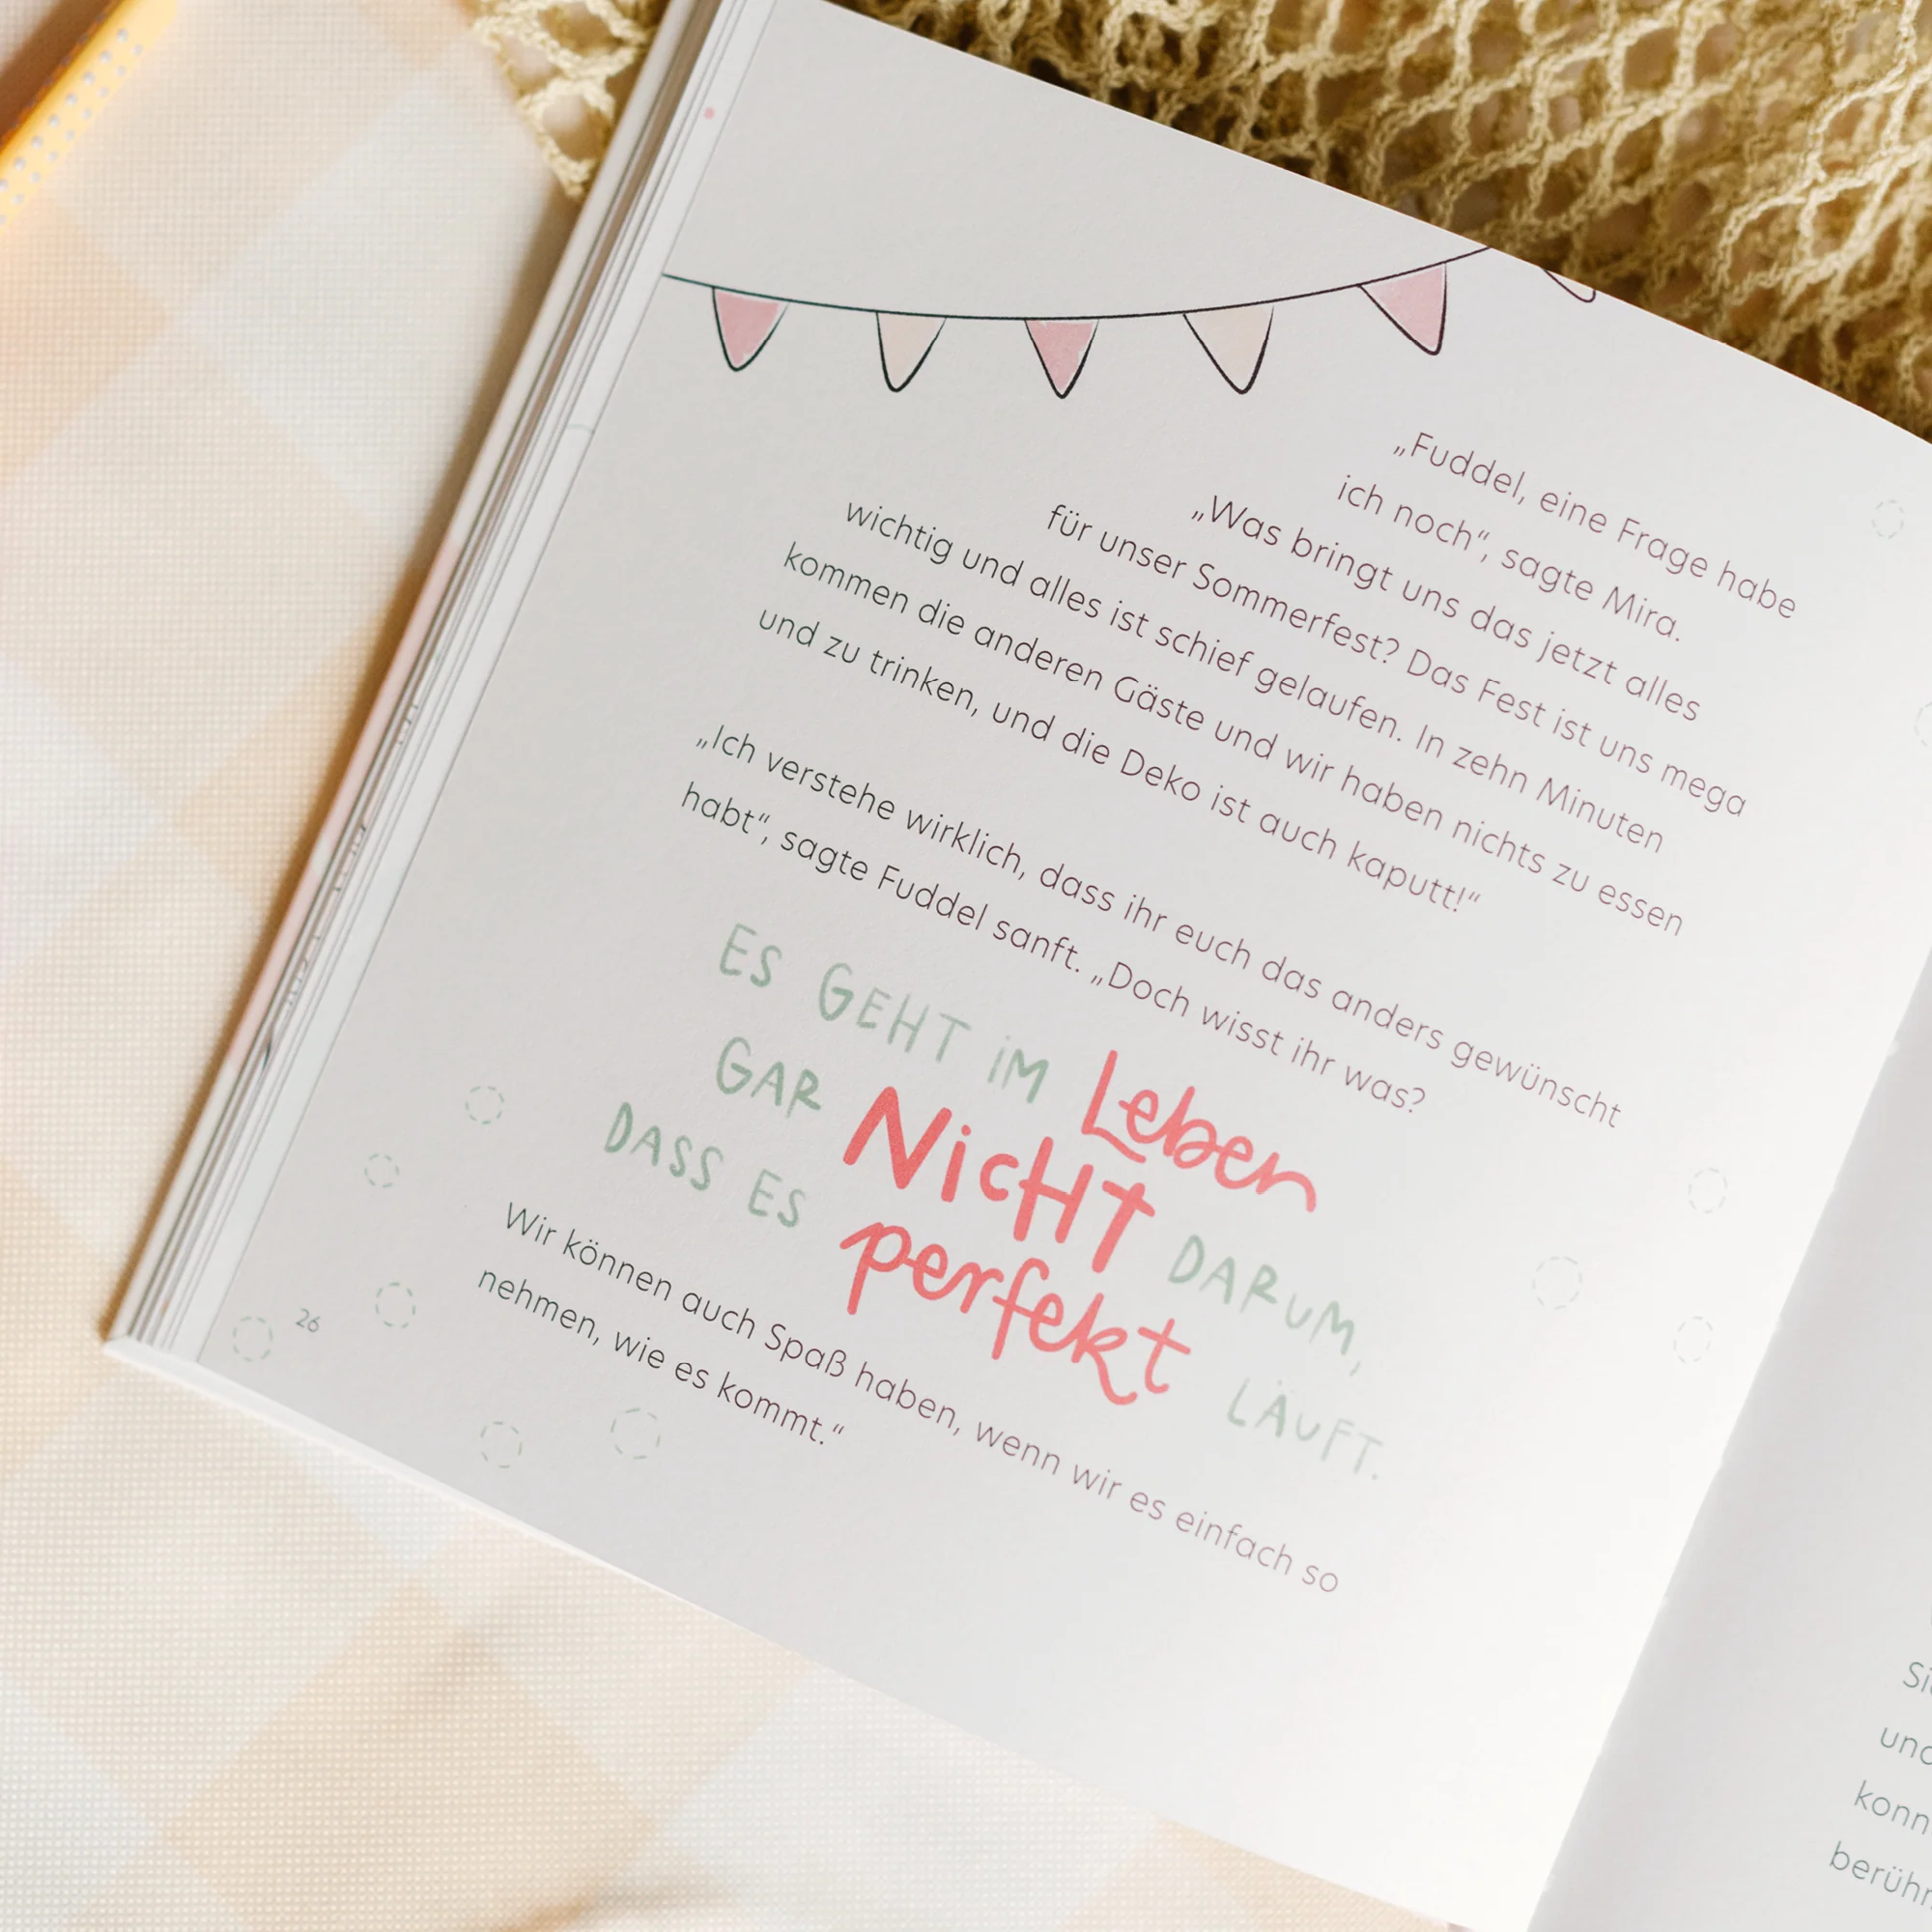 „Fuddel, eine Frage habe
ich noch“, sagte Mira.
„Was bringt uns das jetzt alles
für unser Sommerfest? Das Fest ist uns mega
wichtig und alles ist schief gelaufen. In zehn Minuten
kommen die anderen Gäste und wir haben nichts zu essen
und zu trinken, und die Deko ist auch kaputt!“
„Ich verstehe wirklich, dass ihr euch das anders gewünscht
habt“, sagte Fuddel sanft. „Doch wisst ihr was?
ES GEHT iM Leben
GAR NicHT DARuM,
DASS ES perfekt LÄuFT.
Wir können auch Spaß haben, wenn wir es einfach so
nehmen, wie es kommt.“
26